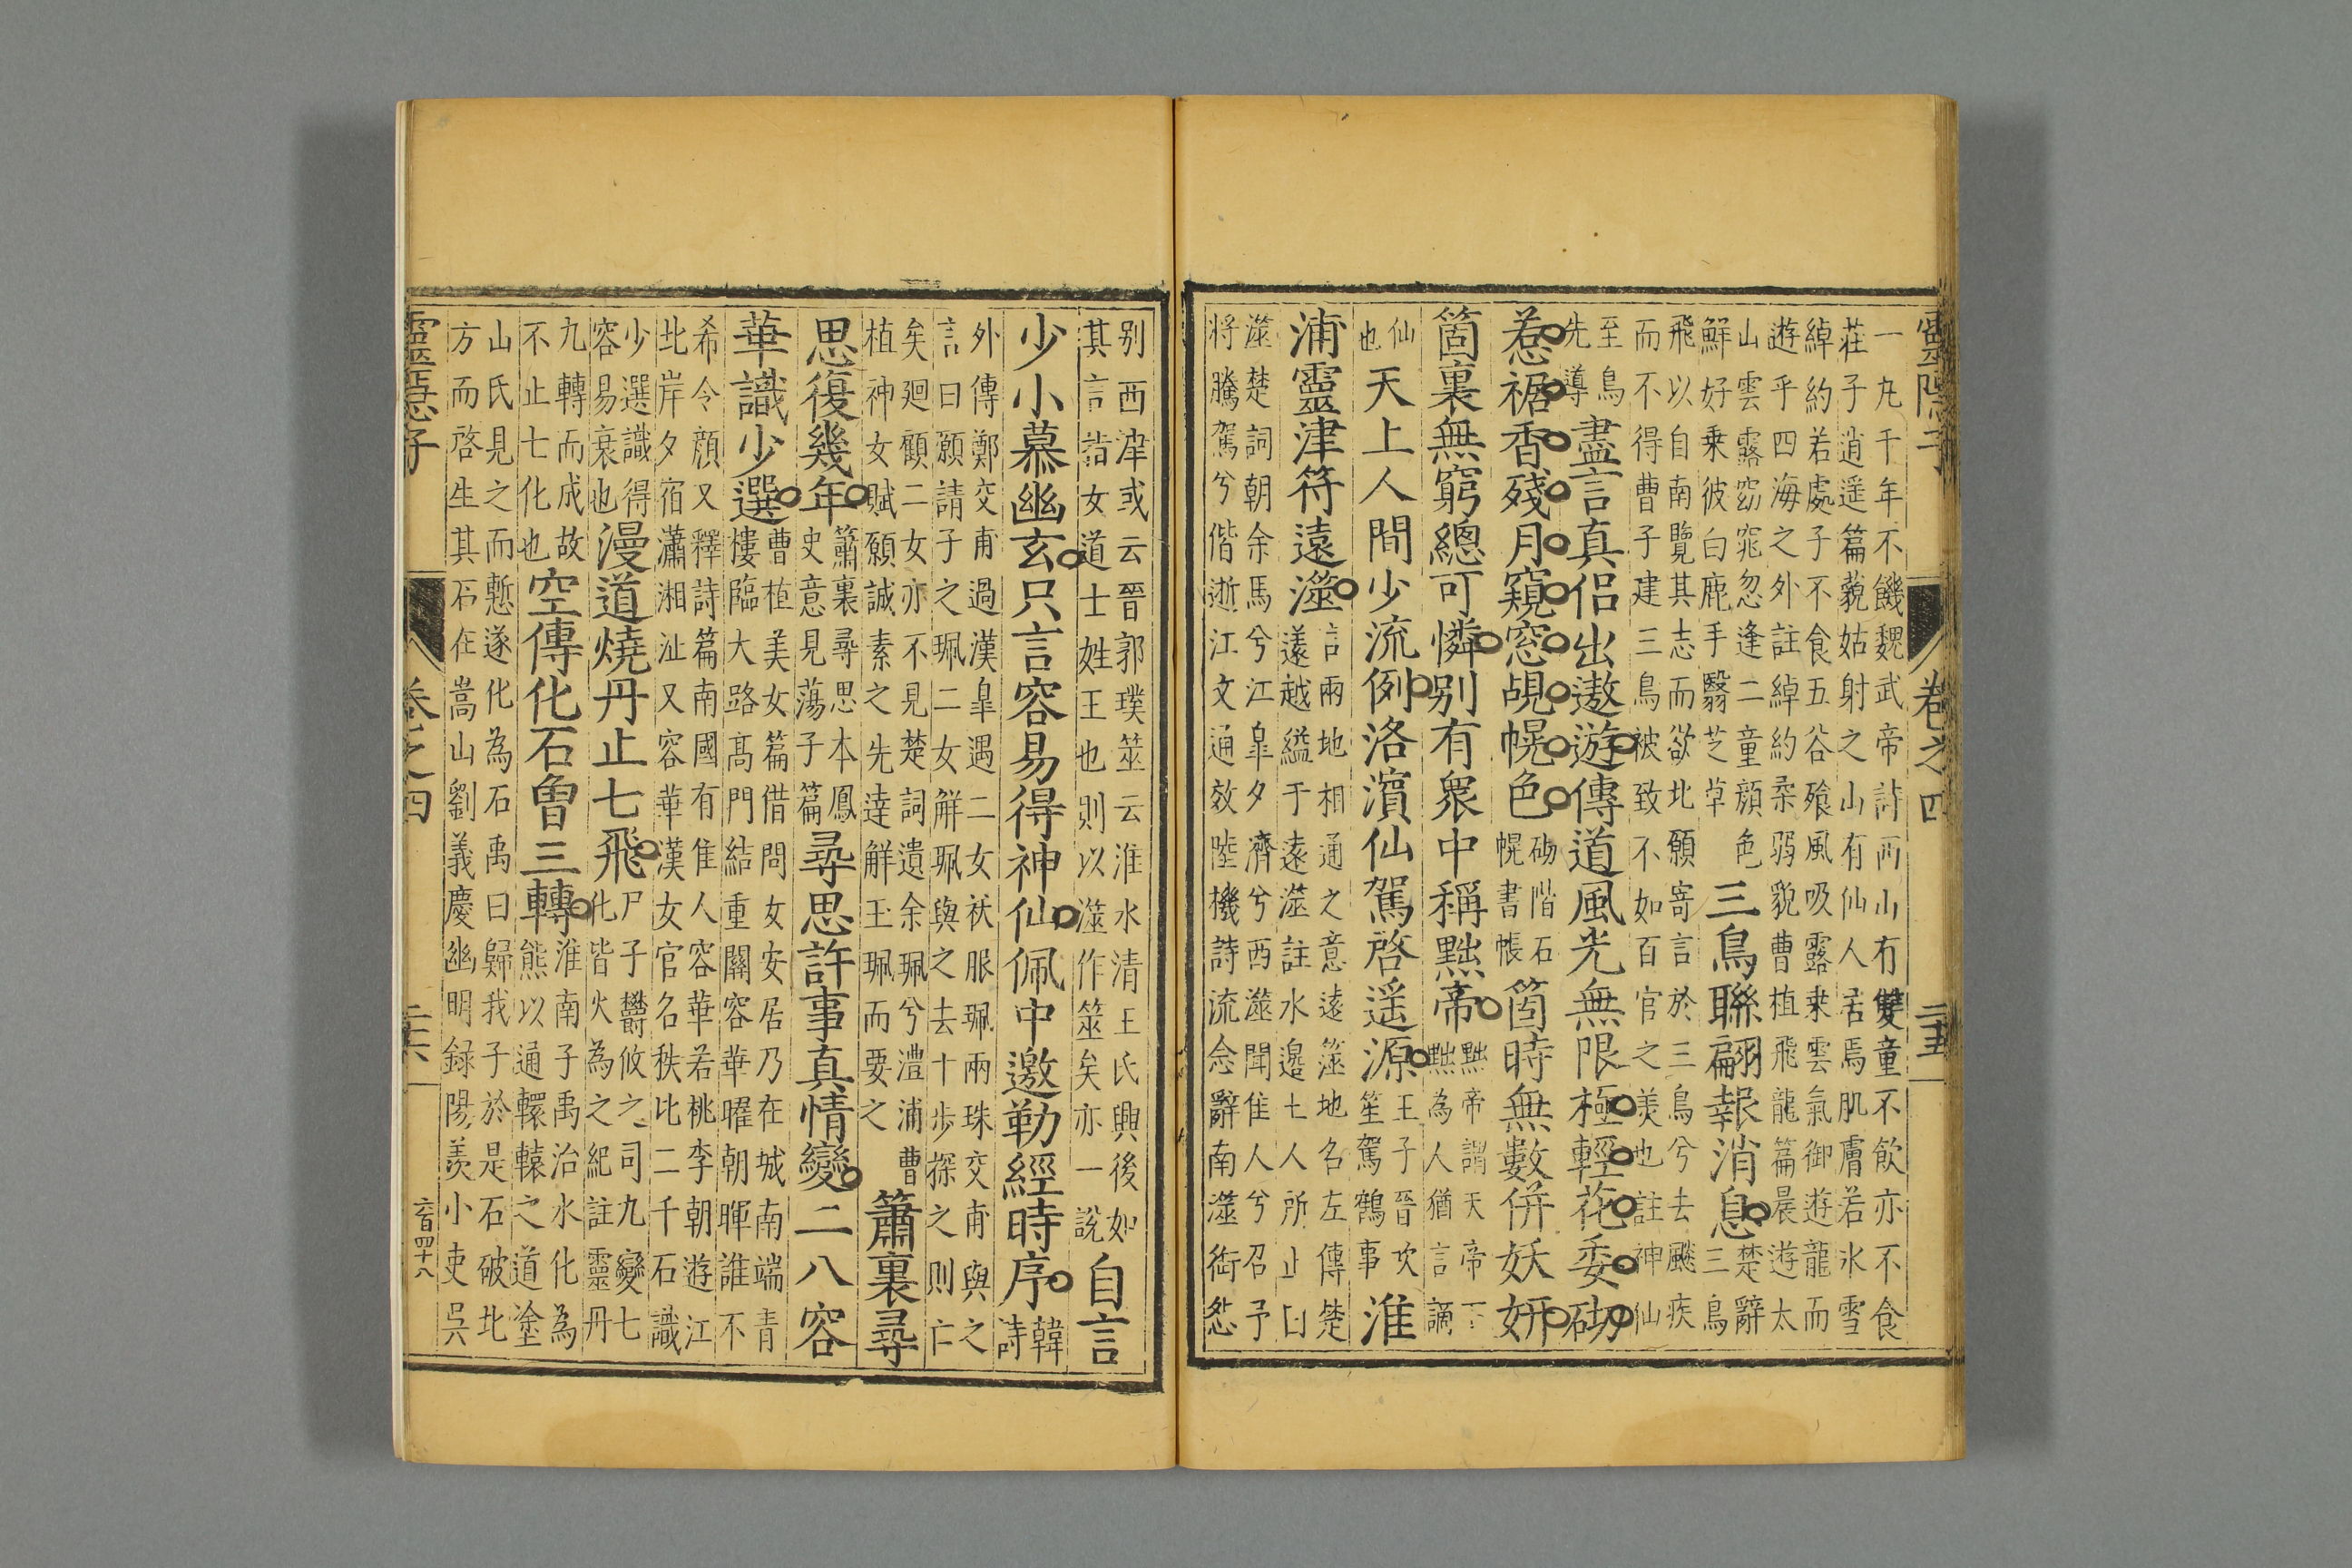 靈隱子 卷之四 二十五
一丸千年不饑魏武帝詩西山有雙童不飲亦不食
莊子逍遥篇藐姑射之山有仙人居焉肌膚若氷雪
綽約若處子不食五谷飱風吸露乗雲氣御遊龍而
遊乎四海之外註綽約柔弱貌曹植飛龍篇晨遊太
山雲露窈窕忽逢二童顔色
鮮好乗彼白鹿手翳芝草
三鳥聯翩報消息
楚辭
三鳥
飛以自南覽其志而欲北願寄言於三鳥兮去飈疾
而不得曹子建三鳥被致不如百官之羡也註神仙
至鳥
先導
盡言真侣出遨遊傳道風光無限極輕花委砌
惹裾香殘月窺窓覘幌色
砌階石
幌書帳
箇時無數併妖妍
箇裏無窮總可憐别有衆中稱黜帝
黜帝謂天帝下
黜為人猶言謫
仙
也
天上人間少流例洛濱仙駕啓遥源
王子晉吹
笙駕鶴事
淮
浦靈津符遠澨
言兩地相通之意遠筮地名左傳楚
薳越縊于遠澨註水邉土人所止曰
澨楚詞朝余馬兮江臯夕濟兮西澨聞佳人兮召予
将騰駕兮偕逝江文通效陸機詩流念辭南澨銜怨
别西岸或云晉郭璞筮云淮水清王氏興後如
其言指女道士姓王也則以澨作筮矣亦一説
自言
少小慕幽玄只言容易得神仙佩中邀勒經時序
韓
詩
外傳鄭交甫過漢臯遇二女袄服珮兩珠交甫與之
言曰願請子之珮二女解珮與之去十歩探之則亡
矣廻顧二女亦不見楚詞遺余珮兮澧浦曹
植神女賦願誠素之先達解玉珮而要之
簫裏尋
思復幾年
簫裏尋思本鳳
史意見蕩子篇
尋思許事真情變二八容
華識少選
曹植美女篇借問女安居乃在城南端青
樓臨大路髙門結重關容華曜朝暉誰不
希令顔又釋詩篇南國有佳人容華若桃李朝遊江
北岸夕宿瀟湘沚又容華漢女官名秩比二千石識
少選識得
容易衰也
漫道燒丹止七飛
尸子欝攸之司九變七
化皆火為之紀註靈丹
九轉而成故
不止七化也
空傳化石曾三轉
淮南子禹治水化為
熊以通轘轅之道塗
山氏見之而慙遂化為石禹曰歸我子於是石破北
方而啓生其石在嵩山劉義慶幽明録陽羡小吏吳
靈隱子 卷之四 二十六 六百四十八